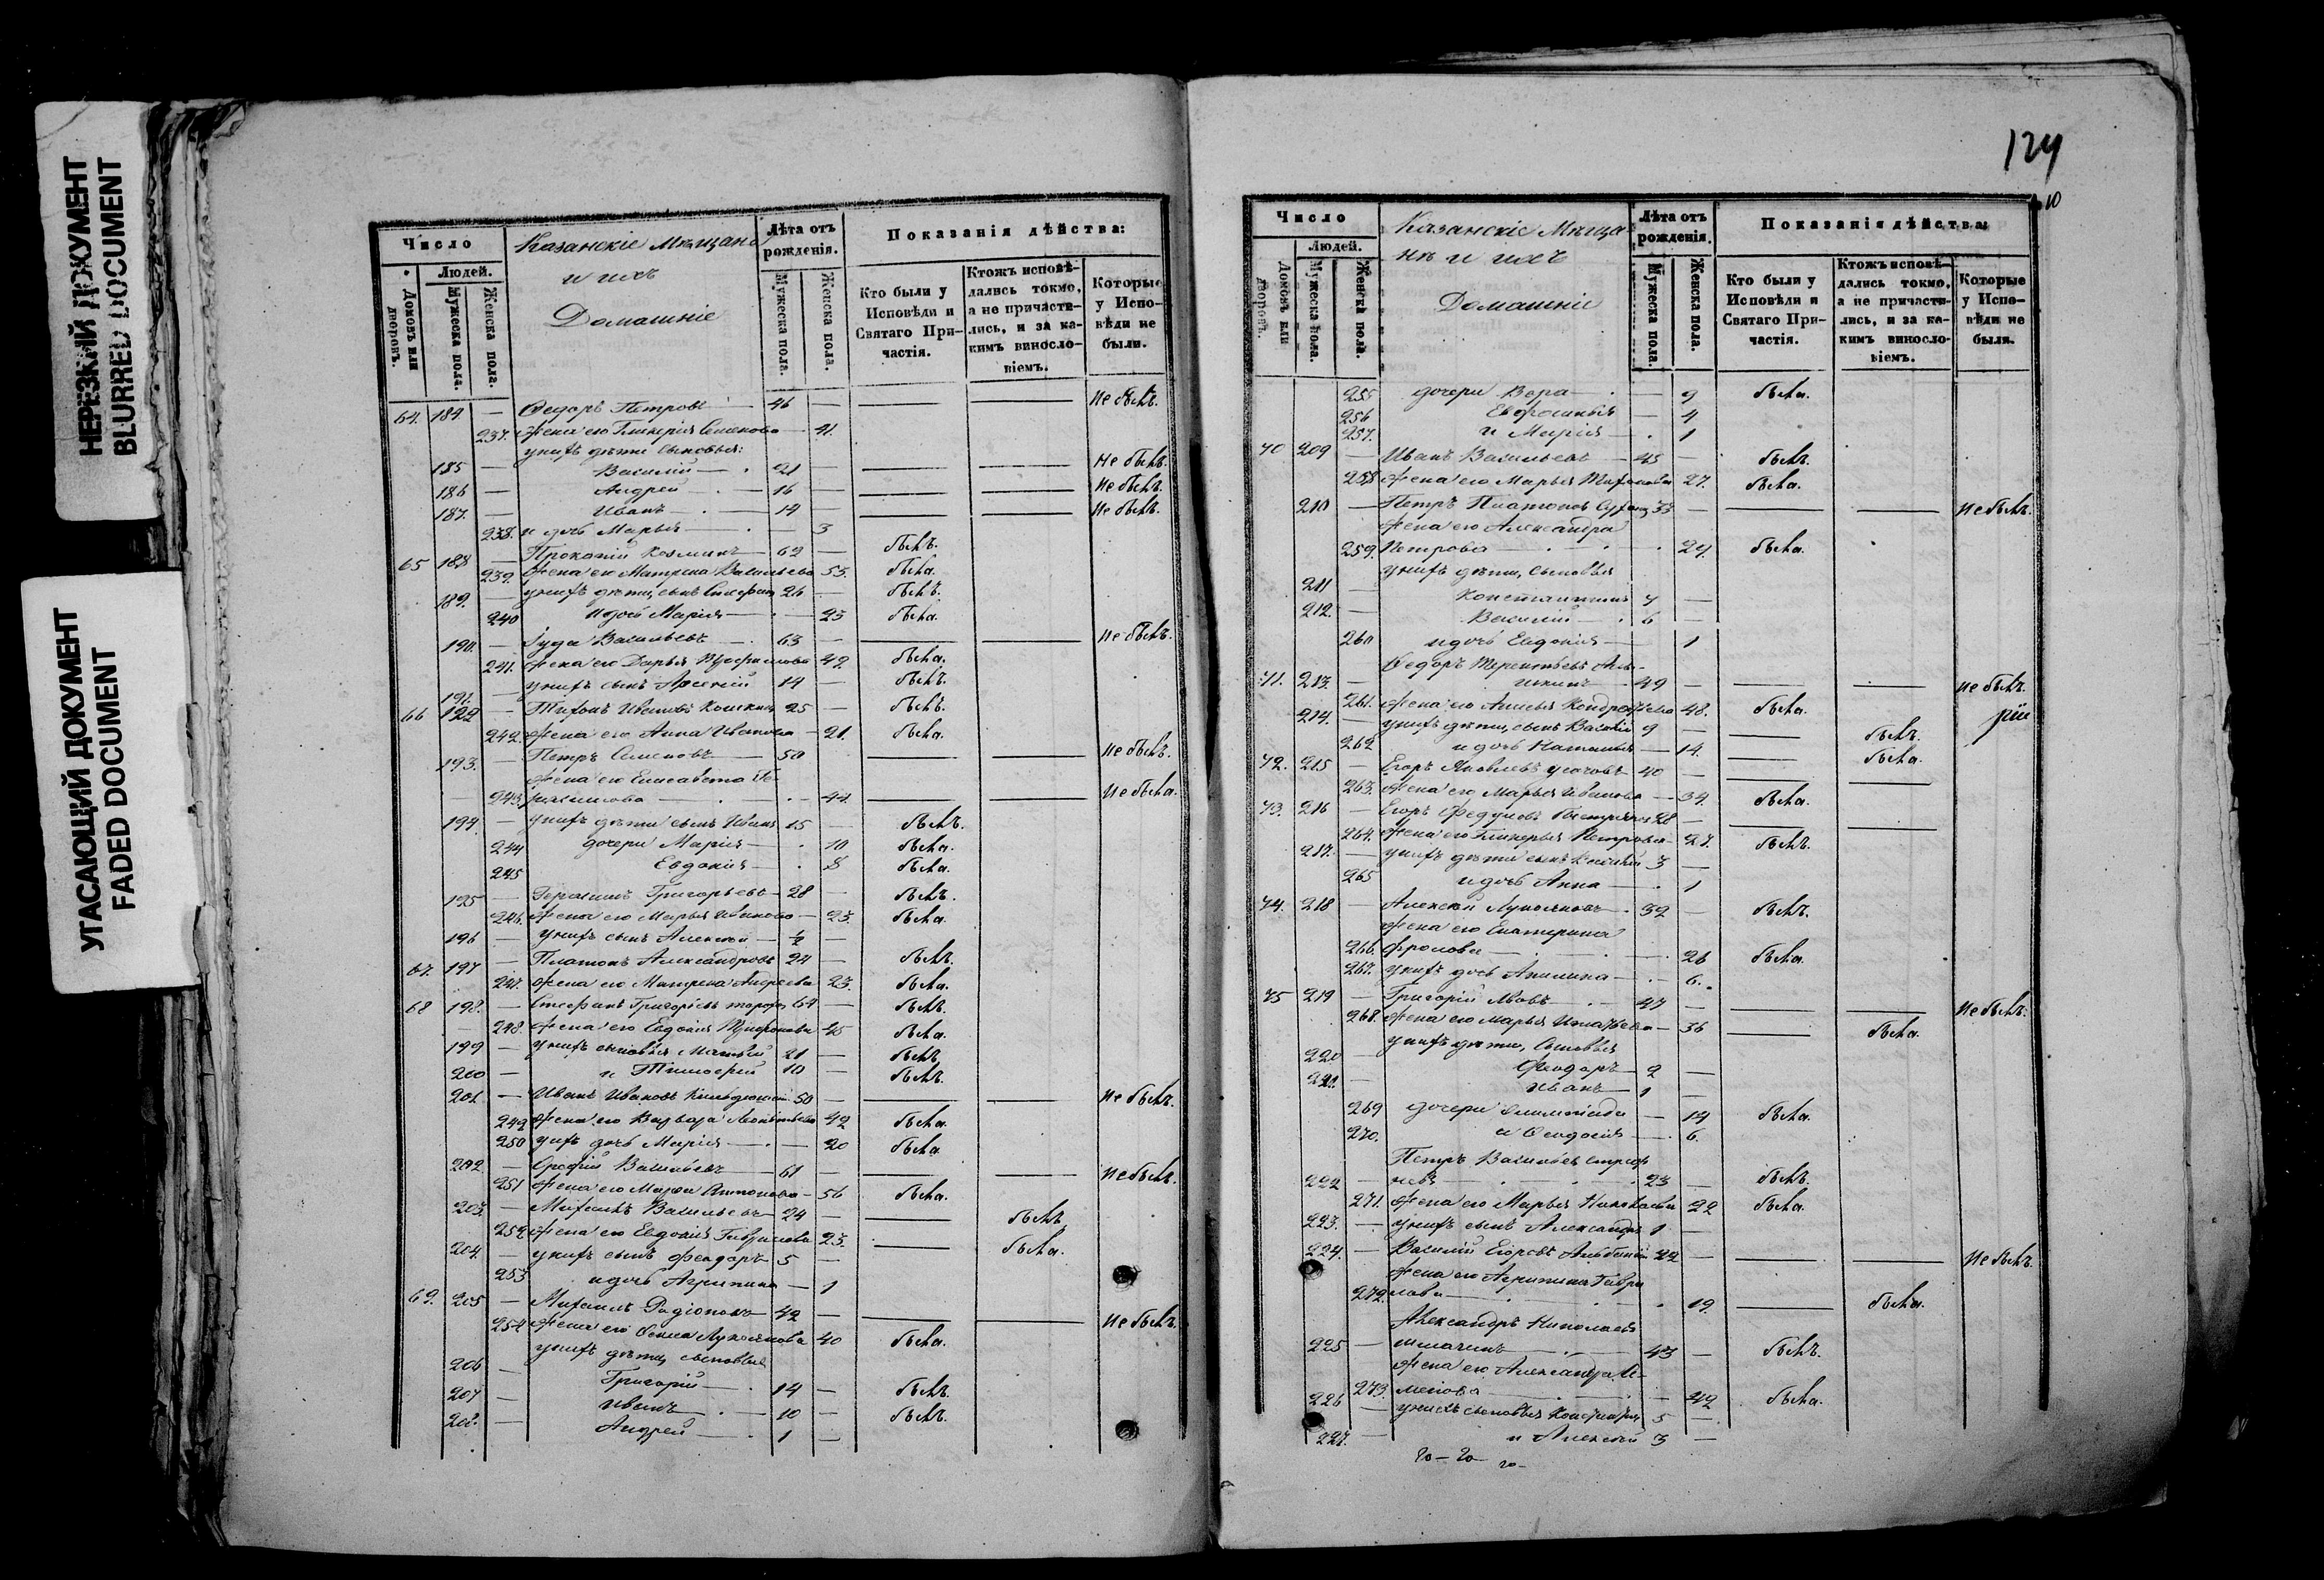 НЕРЕЗКИЙ ДОКУМЕНТ
BLURRED DOCUMENT
УГАСАЮЩИЙ ДОКУМЕНТ
FADED DOCUMENT
Число
Людей.
Домовъ или дворовъ.
Мужеска пола.
Женска пола.
Казанскіе Мѣщане
и ихъ
Домашніе
Лѣта отъ рожденія.
Мужеска пола.
Женска пола.
Показанія дѣйства:
Кто были у Исповѣди и Святаго При-частія.
Ктожъ исповѣ-дались токмо, а не причасти-лись, и за ка-кимъ винослο-віемъ.
Которые у Испо-вѣди не были.
64. 184 — Федоръ Петровъ — 46 — Не былъ.
237. жена его Гликерія Семенова — 41.
у нихъ дѣти сыновья:
185 — Василий — 21 Не былъ.
186 — Андрей — 16 — Не былъ.
187. — Иванъ — 14 — Не былъ.
238. и дочь Марья — 3
65 188 — Прокопій Козминъ — 62 — былъ.
239. жена его Матрена Васильева 53. была.
189. — у нихъ дѣти, сынъ Стефанъ 26 — былъ.
240 и дочь Марія — 23 была.
190. — Іуда Васильевъ — 63 — Не былъ.
241. жена его Дарья 42 была.
у нихъ сынъ Арсений 14 — былъ.
191.
66 192 — Тихонъ Ивановъ 25 — былъ.
242. жена его Анна Иванова — 21. была.
193. — Петръ Семеновъ — 50 Не былъ.
жена его Елисавета Ге-
243. расимова — 44. Не была.
194. — у нихъ дѣти сынъ Иванъ 15 — былъ.
244 дочери Марія — 10 была.
245 Евдокія — 8 была.
195 — Герасимъ Григорьевъ — 28 — былъ.
246. жена его Марья Иванова — 23. была.
196 — у нихъ сынъ Алексѣй — ½ —
67. 197 — Платонъ Александровъ 24 — былъ.
247. жена его Матрена Андреева 23. была.
68 198. — Стефанъ Григорьевъ 64 — былъ.
— 248. жена его Евдокія 45 была.
199 — у нихъ сыновья Матвѣй 21 — былъ
200 — и Тимофей 10 — былъ.
201. — Иванъ Ивановъ 50 — Не былъ.
249 жена его Варвара Леонтьева 42 была.
250 у нихъ дочь Марія — 20 была
202. — Васильевъ — 61 — Не былъ.
251 жена его Марѳа Антонова — 56 была.
203. — Михаилъ Васильевъ — 24 — былъ
252 жена его Евдокія Гаврилова 23. была.
204. — у нихъ сынъ Феодоръ — 5 —
253 и дочь Агрипина — 1
69. 205 — Михаилъ Радіоновъ — 42 — Не былъ.
254 жена его Лукоянова 40 была.
у нихъ дѣти, сыновья
206 — Григорій — 14 — былъ.
207 — Иванъ — 10 — былъ.
208. — Андрей — 1 —
124
10
Число
Людей.
Домовъ или дворовъ.
Мужеска пола.
Женска пола.
Казанскіе Мѣща-
не и ихъ
Домашніе
Лѣта отъ рожденія.
Мужеска пола.
Женска пола.
Показанія дѣйства:
Кто были у Исповѣди и Святаго При-частія.
Ктожъ исповѣ-дались токмо, а не причасти-лись, и за ка-кимъ винослο-віемъ.
Которые у Испо-вѣди не были.
255 дочери Вера — 9 была.
256 Евфросинья — 4
257. и Марія — 1
70 209 — Иванъ Васильевъ — 45 — былъ.
258 жена его Марья 27. была.
210 — Петръ Платоновъ 33 — Не былъ.
жена его Александра
259. Петрова — 24. была.
у нихъ дѣти, сыновья
211 — Константинъ 7 —
212. — Василій — 6 —
260 и дочь Евдокия — 1
71. 213. Федоръ Терентьевъ 49 — Не былъ.
261. жена его Кондратьева 48. была.
214. — у нихъ дѣти, сынъ Василій 9 — былъ.
262 и дочь Наталья — 14. была.
72. 215 — Егоръ Яковлевъ Усачовъ 40 —
263. жена его Марья Иванова — 34. была.
73. 216 — Егоръ 28 —
264. жена его Гликерья Петрова — 27. былъ.
217. — у нихъ дѣти сынъ 3 —
265 и дочь Анна — 1
74. 218 — Алексѣй Лукояновъ 32 — былъ.
жена его Екатерина
266. Фролова — 26 была.
267. у нихъ дочь Акилина — 6.
75 219 — Григорій Львовъ — 47 — Не былъ.
268. жена его Марья Игнатьева — 36 была.
у нихъ дѣти, сыновья
220 — Феодоръ — 2 —
221. — Иванъ — 1 —
269 дочери Олимпіада — 14 была.
270. и Феодосия — 6.
Петръ Васильевъ
222 — 23 — былъ.
271. жена его Марья Николаева 22 была.
223. — у нихъ сынъ Александръ 1 —
224. — Василій Егоровъ 22 — Не былъ.
жена его Агрипина Гаври
272. лова — 19. была.
Александръ Николаевъ
225 — 43 — былъ.
жена его Александра Се-
273. менова — 42 была.
226 — у нихъ сыновья 5 —
227. — и Алексѣй 3 —
20 — 20 — 20 —